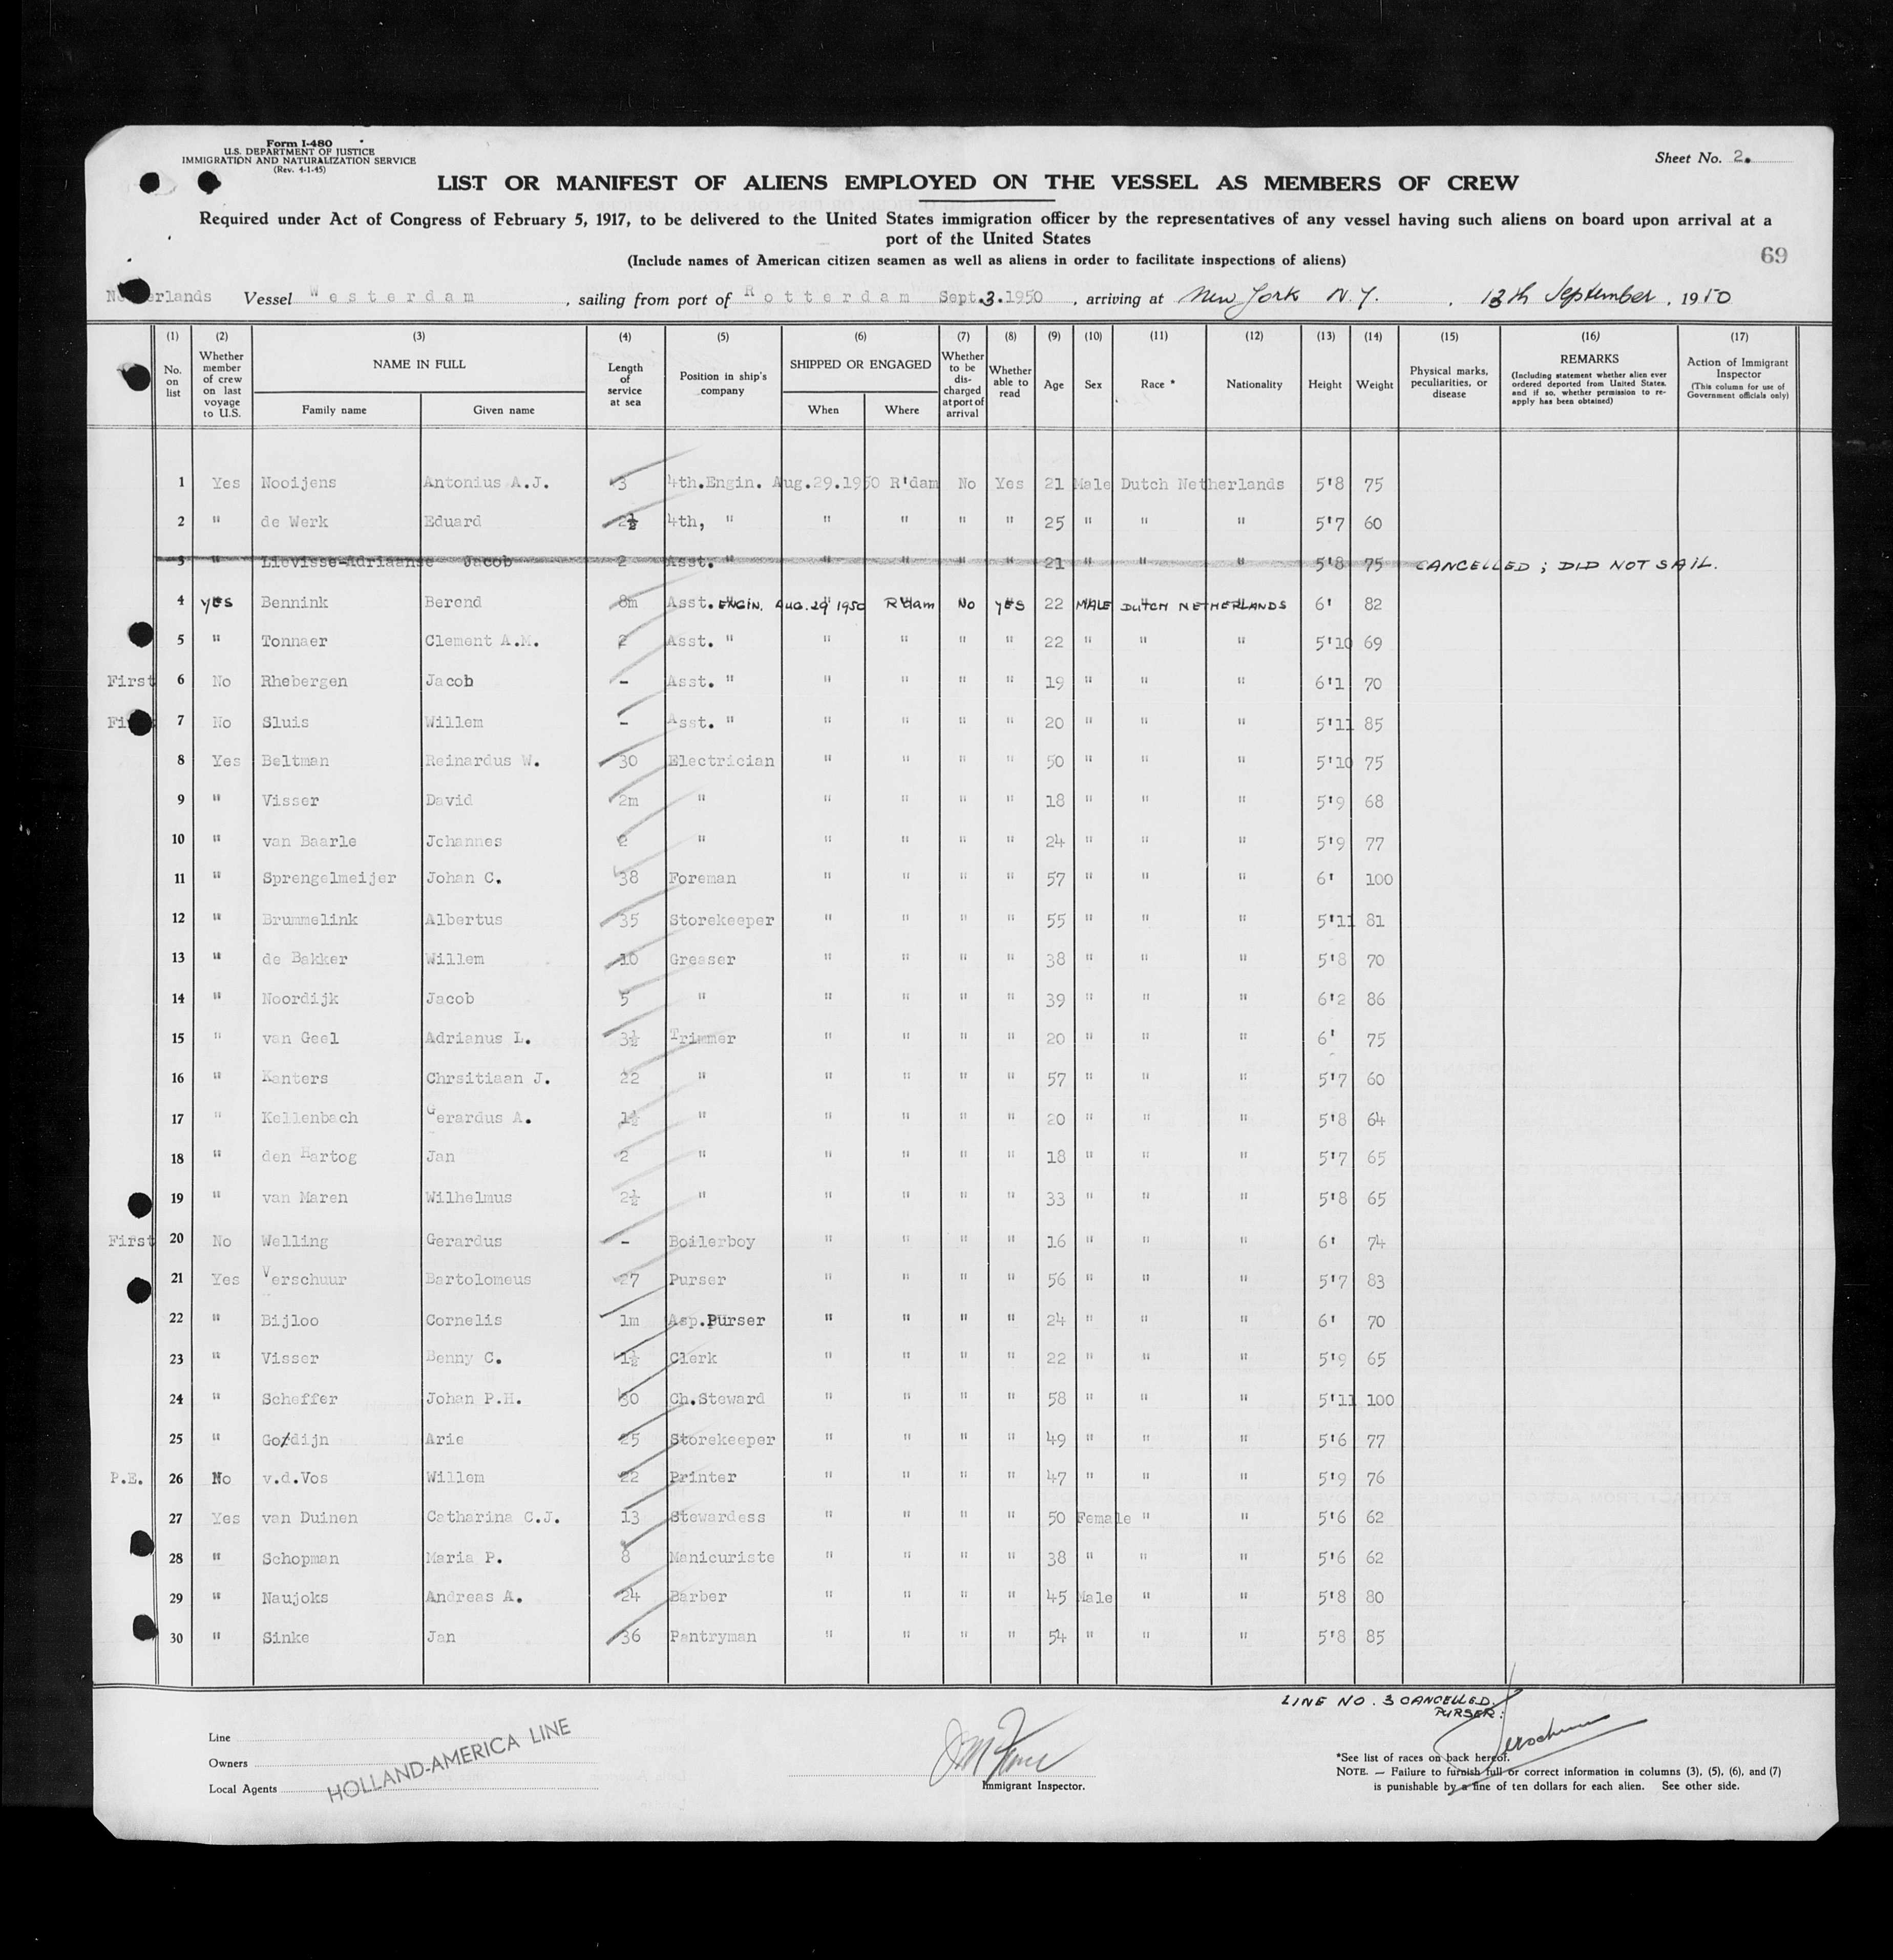 Form I-480
U.S. DEPARTMENT OF JUSTICE
IMMIGRATION AND NATURALIZATION SERVICE
(Rev. 4-1-45)
Sheet No. 2.
LIST OR MANIFEST OF ALIENS EMPLOYED ON THE VESSEL AS MEMBERS OF CREW
Required under Act of Congress of February 5, 1917, to be delivered to the United States immigration officer by the representatives of any vessel having such aliens on board upon arrival at a
port of the United States
69
(Include names of American citizen seamen as well as aliens in order to facilitate inspections of aliens)
Vessel Westerdam, sailing from port of Rotterdam Sept.3.1950, arriving at New York N.Y., 13th September, 1950
(1) (2) (3) (4) (5) (6) (7) (8) (9) (10) (11) (12) (13) (14) (15) (16) (17)
No. on list Whether member of crew on last voyage to U.S. NAME IN FULL Family name Given name Length of service at sea Position in ship's company SHIPPED OR ENGAGED When Where Whether to be discharged at port of arrival Whether able to read Age Sex Race * Nationality Height Weight Physical marks, peculiarities, or disease REMARKS (Including statement whether alien ever ordered deported from United States, and if so, whether permission to re-apply has been obtained) Action of Immigrant Inspector (This column for use of Government officials only)
1 Yes Nooijens Antonius A.J. 3 4th.Engin. Aug.29.1950 R'dam No Yes 21 Male Dutch Netherlands 5'8 75
2 " de Werk Eduard 2½ 4th, " " " " " 25 " " " 5'7 60
3 " Lievisse-Adriaanse Jacob 2 Asst. " " " " " 21 " " " 5'8 75 CANCELLED; DID NOT SAIL.
4 YES Bennink Berend 8m Asst. ENGIN. AUG. 29 1950 R'dam No YES 22 MALE DUTCH NETHERLANDS 6' 82
5 " Tonnaer Clement A.M. 2 Asst. " " " " " 22 " " " 5'10 69
First 6 No Rhebergen Jacob - Asst. " " " " " 19 " " " 6'1 70
7 No Sluis Willem - Asst. " " " " " 20 " " " 5'11 85
8 Yes Beltman Reinardus W. 30 Electrician " " " " 50 " " " 5'10 75
9 " Visser David 2m " " " " " 18 " " " 5'9 68
10 " van Baarle Johannes 2 " " " " " 24 " " " 5'9 77
11 " Sprengelmeijer Johan C. 38 Foreman " " " " 57 " " " 6' 100
12 " Brummelink Albertus 35 Storekeeper " " " " 55 " " " 5'11 81
13 " de Bakker Willem 10 Greaser " " " " 38 " " " 5'8 70
14 " Noordijk Jacob 5 " " " " " 39 " " " 6'2 86
15 " van Geel Adrianus L. 3½ Trimmer " " " " 20 " " " 6' 75
16 " Kanters Chrsitiaan J. 22 " " " " " 57 " " " 5'7 60
17 " Kellenbach Gerardus A. 1½ " " " " " 20 " " " 5'8 64
18 " den Hartog Jan 2 " " " " " 18 " " " 5'7 65
19 " van Maren Wilhelmus 2½ " " " " " 33 " " " 5'8 65
First 20 No Welling Gerardus - Boilerboy " " " " 16 " " " 6' 74
21 Yes Verschuur Bartolomeus 27 Purser " " " " 56 " " " 5'7 83
22 " Bijloo Cornelis 1m Asp.Purser " " " " 24 " " " 6' 70
23 " Visser Benny C. 1½ Clerk " " " " 22 " " " 5'9 65
24 " Scheffer Johan P.H. 30 Ch.Steward " " " " 58 " " " 5'11 100
25 " Gordijn Arie 25 Storekeeper " " " " 49 " " " 5'6 77
P.E. 26 No v.d.Vos Willem 22 Printer " " " " 47 " " " 5'9 76
27 Yes van Duinen Catharina C.J. 13 Stewardess " " " " 50 Female " " 5'6 62
28 " Schopman Maria P. 8 Manicuriste " " " " 38 " " " 5'6 62
29 " Naujoks Andreas A. 24 Barber " " " " 45 Male " " 5'8 80
30 " Sinke Jan 36 Pantryman " " " " 54 " " " 5'8 85
LINE NO. 3 CANCELLED.
PURSER:
Line
Owners
Local Agents
HOLLAND-AMERICA LINE
Immigrant Inspector.
*See list of races on back hereof.
NOTE. — Failure to furnish full or correct information in columns (3), (5), (6), and (7)
is punishable by a fine of ten dollars for each alien. See other side.